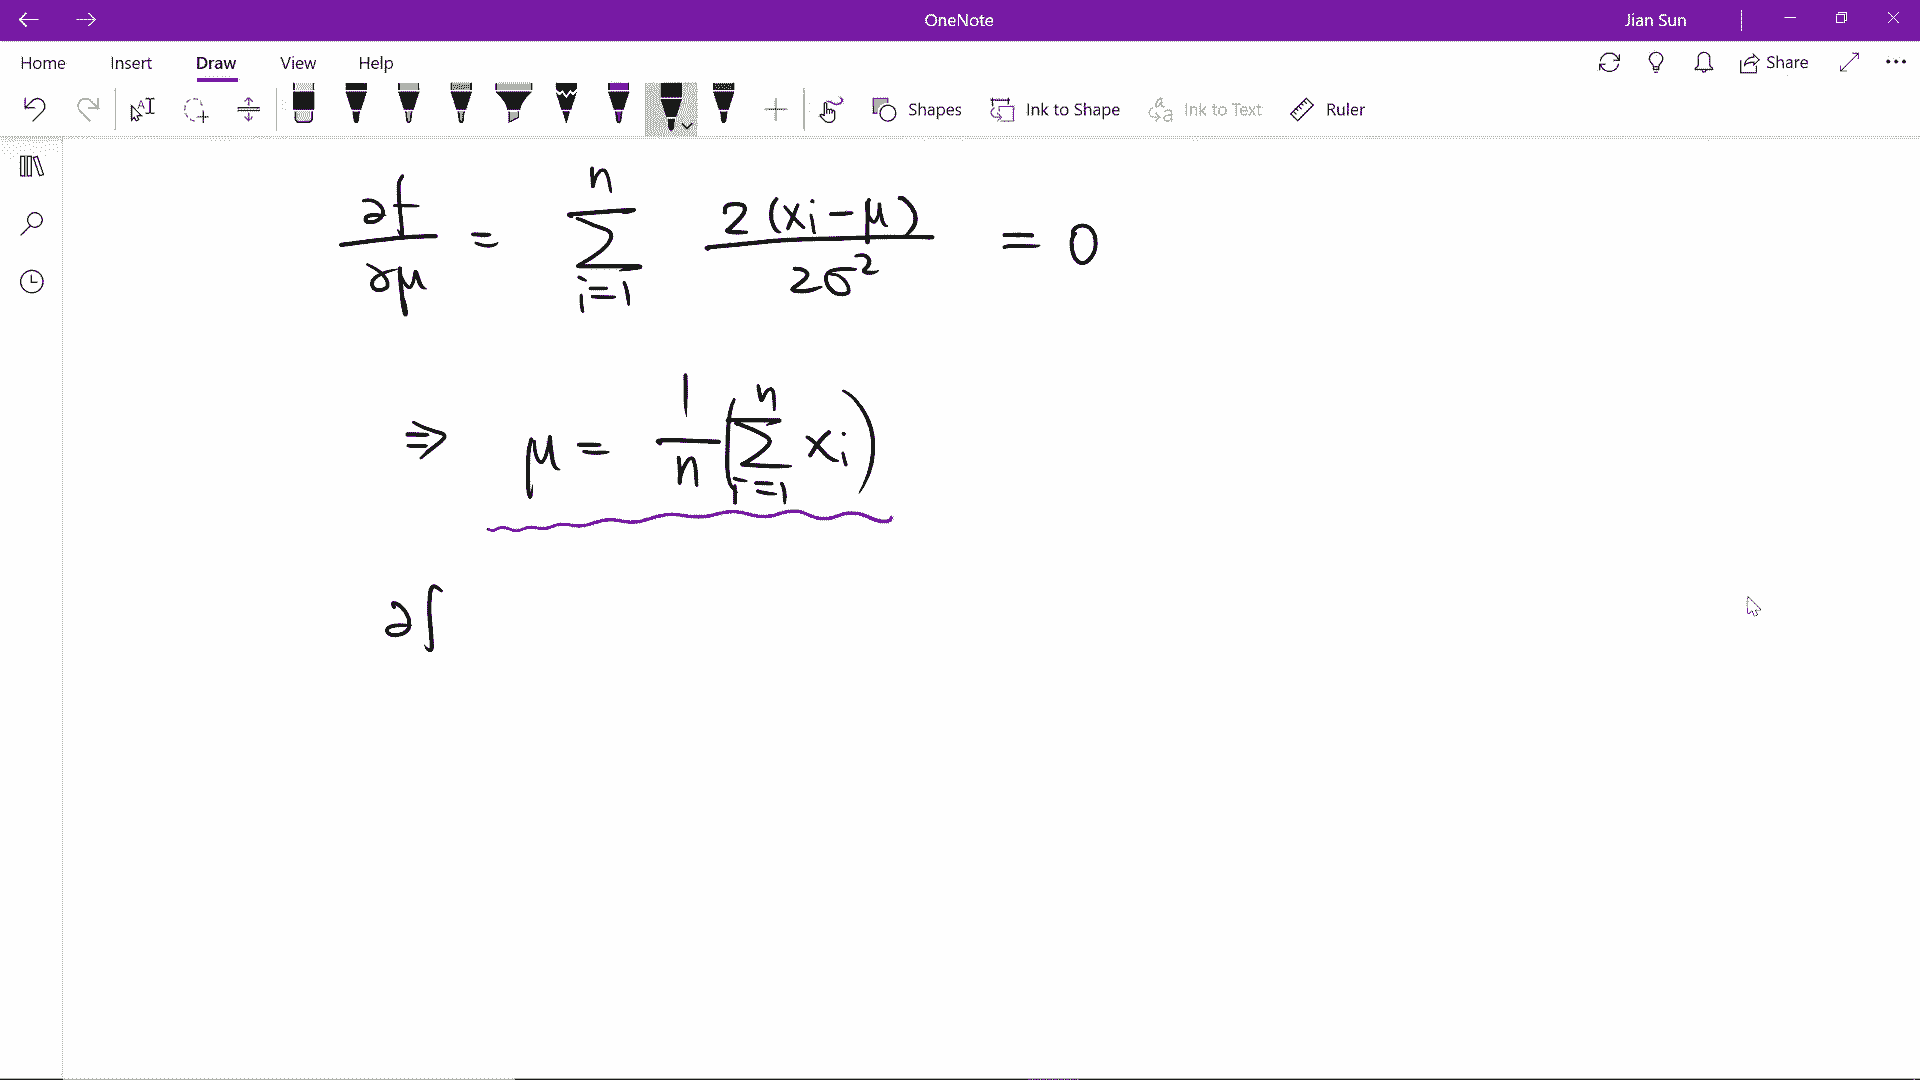 OneNote
Jian Sun
Home Insert Draw View Help
Share
Shapes Ink to Shape Ink to Text Ruler
∂f/∂μ = Σ_{i=1}^{n} 2(xi − μ)/2σ² = 0
⇒ μ = 1/n (Σ_{i=1}^{n} xi)
∂f